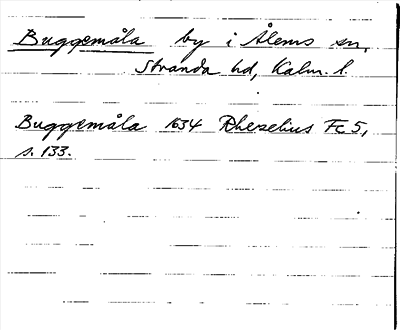 Buggemåla by i Ålems sn,
Stranda hd, Kalm. l.
Buggemåla 1634 Rhezelius Fc 5,
s. 133.